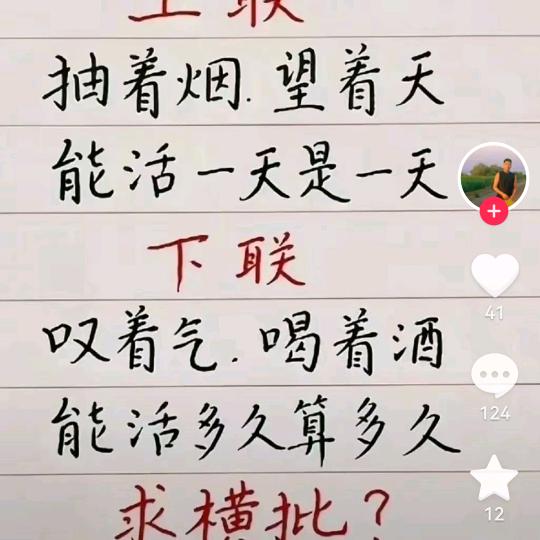 上联
抽着烟.望着天
能活一天是一天
下联
叹着气.喝着酒
能活多久算多久
求横批?
41
124
12